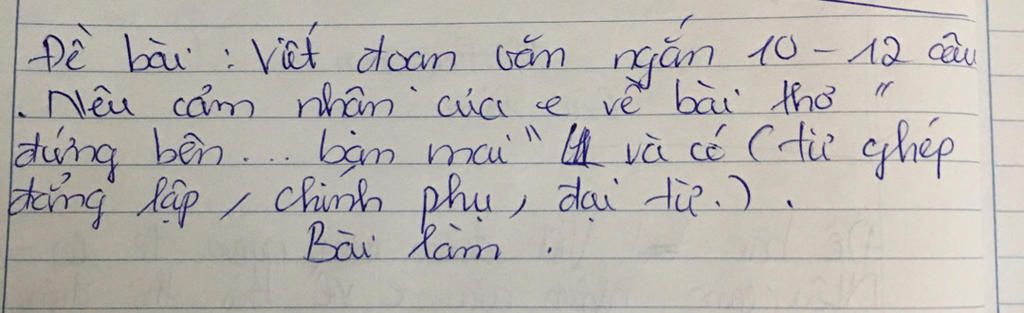 Đề bài : Viết đoạn văn ngắn 10 - 12 câu
. Nêu cảm nhân của e về bài thơ "
đứng bên ... bàn mai" và có ( từ ghép
đẳng lập , chính phụ , đại từ . ) .
Bài làm .